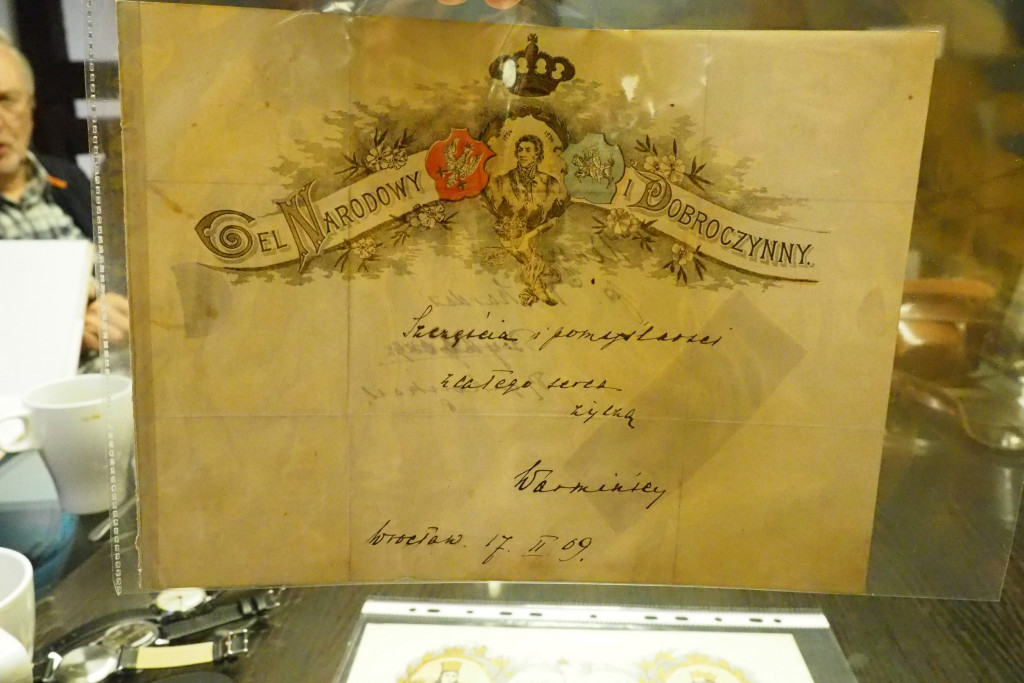 CEL NARODOWY I DOBROCZYNNY.
Szczęścia i pomyślności
z całego serca
życzą
Warmińscy
Wrocław. 17. II 09.